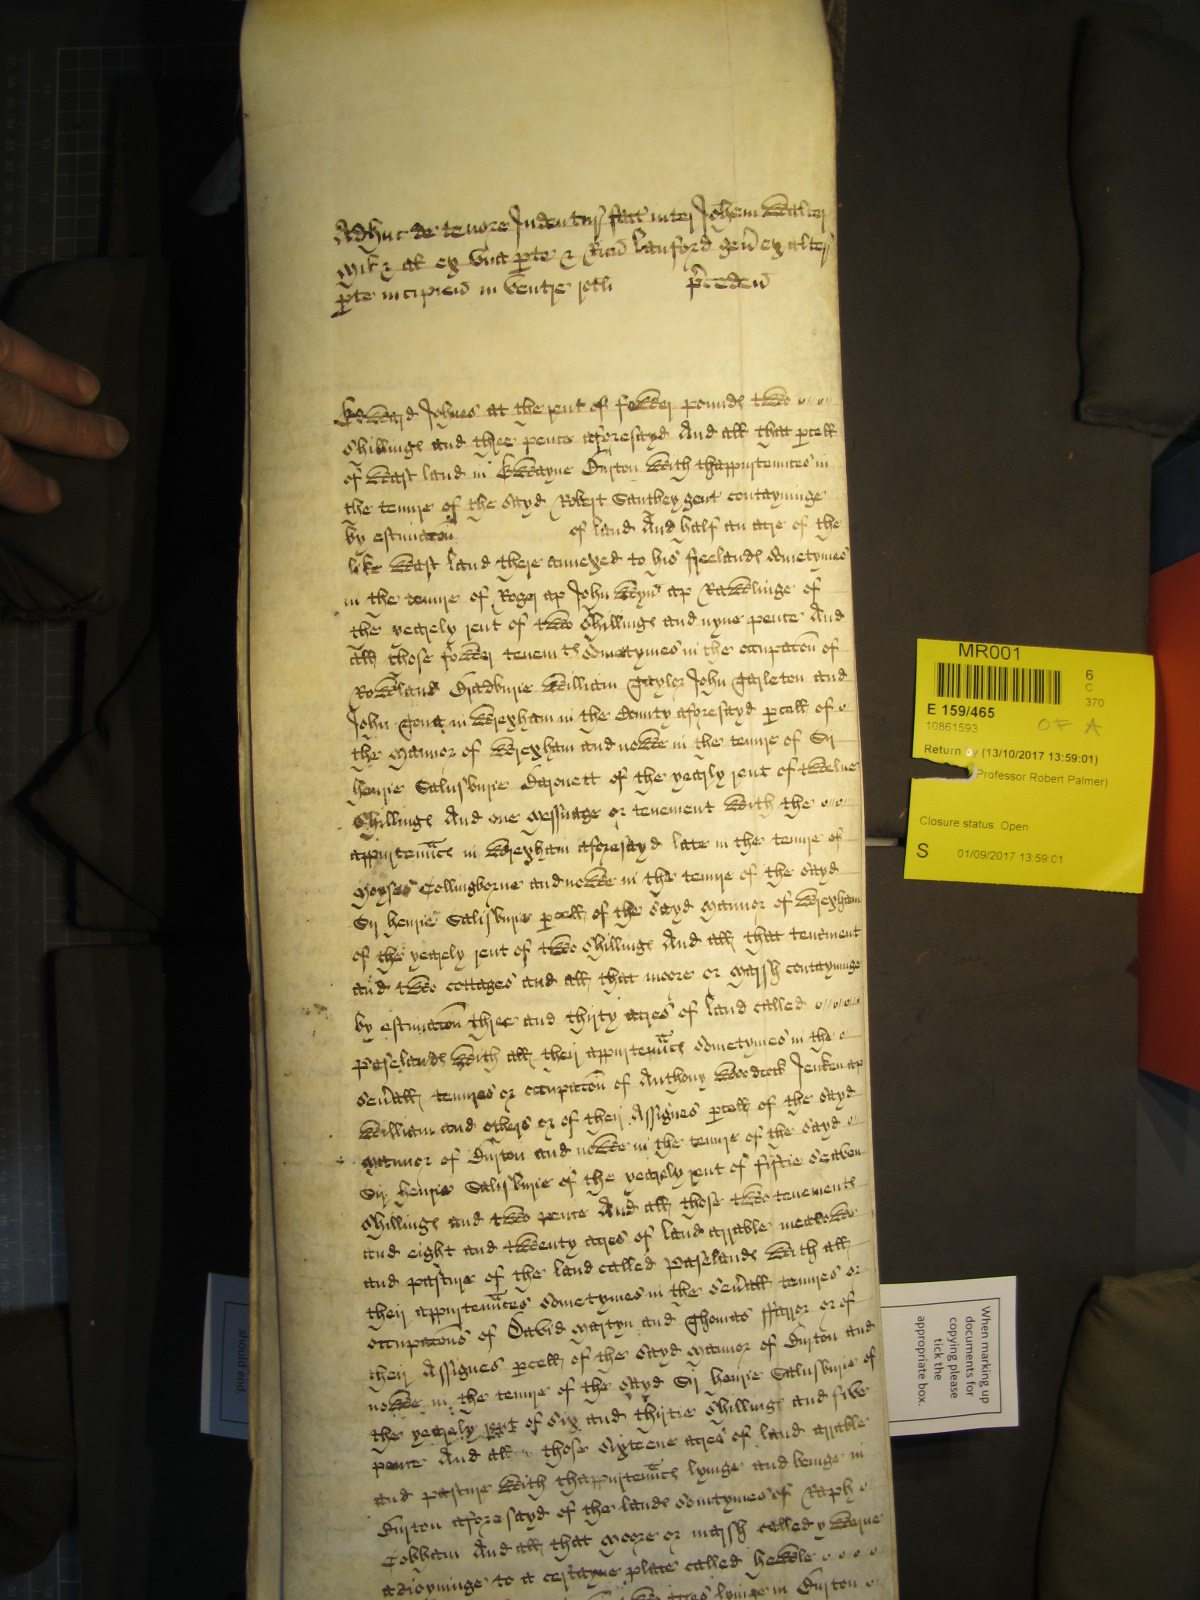 Adhuc de tenore Indentur fact inter Johem Walter
milit & al ex una pte & Ricm Lanford gen ex alter
pte incipien in ventre rotli preceden
Edward Johnes at the rent of fower pounds twoo
shillings and three pence aforesayd And all that pcell
of wast land in Gwayne Burton with thappurtennces in
the tenure of the sayd Robert Santhey gent contayninge
by estimacon of land And half an acre of the
like wast land there annexed to his freelands sometymes
in the tenure of Roger ap John Wyn ap Rawlinge of
the yearely rent of twoo shillings and nyne pence And
all those fower tenemts sometymes in the occupacon of
Rowland Bradburie William Taylor John Carleton and
John in Wrexham in the County aforesayd pcell of
the Mannor of Wrexham and nowe in the tenure of Sir
Henrie Salusburie Baronett of the yearly rent of twelve
shillings And one Messuage or tenement with the
appurtennces in Wrexham aforesayd late in the tenure of
Moyses Collingborne and nowe in the tenure of the sayd
Sir Henrie Salisburie pcell of the sayd Mannor of Wrexham
of the yearely rent of twoo shillings And all that tenement
and twoo cottages and all that moore or marsh contayninge
by estimacon three and thirty acres of land called
Paselands with all their appurtennces sometymes in the
severall tenures or occupacon of Anthony Woodcock Jenken ap
William and others or of their Assignes pcell of the sayd
Mannor of Burton and nowe in the tenure of the sayd
Sir Henrie Salisburie of the yearely rent of fiftie seaven
shillings and twoo pence And all those twoo tenements
and eight and twenty acres of land arrable meadowe
and pasture of the land called Paselands with all
their appurtennces sometymes in the severall tenures or
occupacons of David Martyn and Thomas ffarror or of
their Assignes pcell of the sayd Mannor of Burton and
nowe in the tenure of the sayd Sir Henrie Salusburie of
the yearely rent of Six and thirtie shillings and five
pence And all those Sixteene acres of land arrable
and pasture with thappurtennces lyinge and beinge in
Burton aforesayd of the lands somtymes of Raph
Cobham And all that Moore or marsh called y
adioyninge to a certayne place called Hewle
acres lyinge in Burton
MR001
6
C
370
E 159/465
10861593
OF A
Return by (13/10/2017 13:59:01)
Professor Robert Palmer)
Closure status: Open
S 01/09/2017 13:59:01
When marking up
documents for
copying please
tick the
appropriate box.
should end